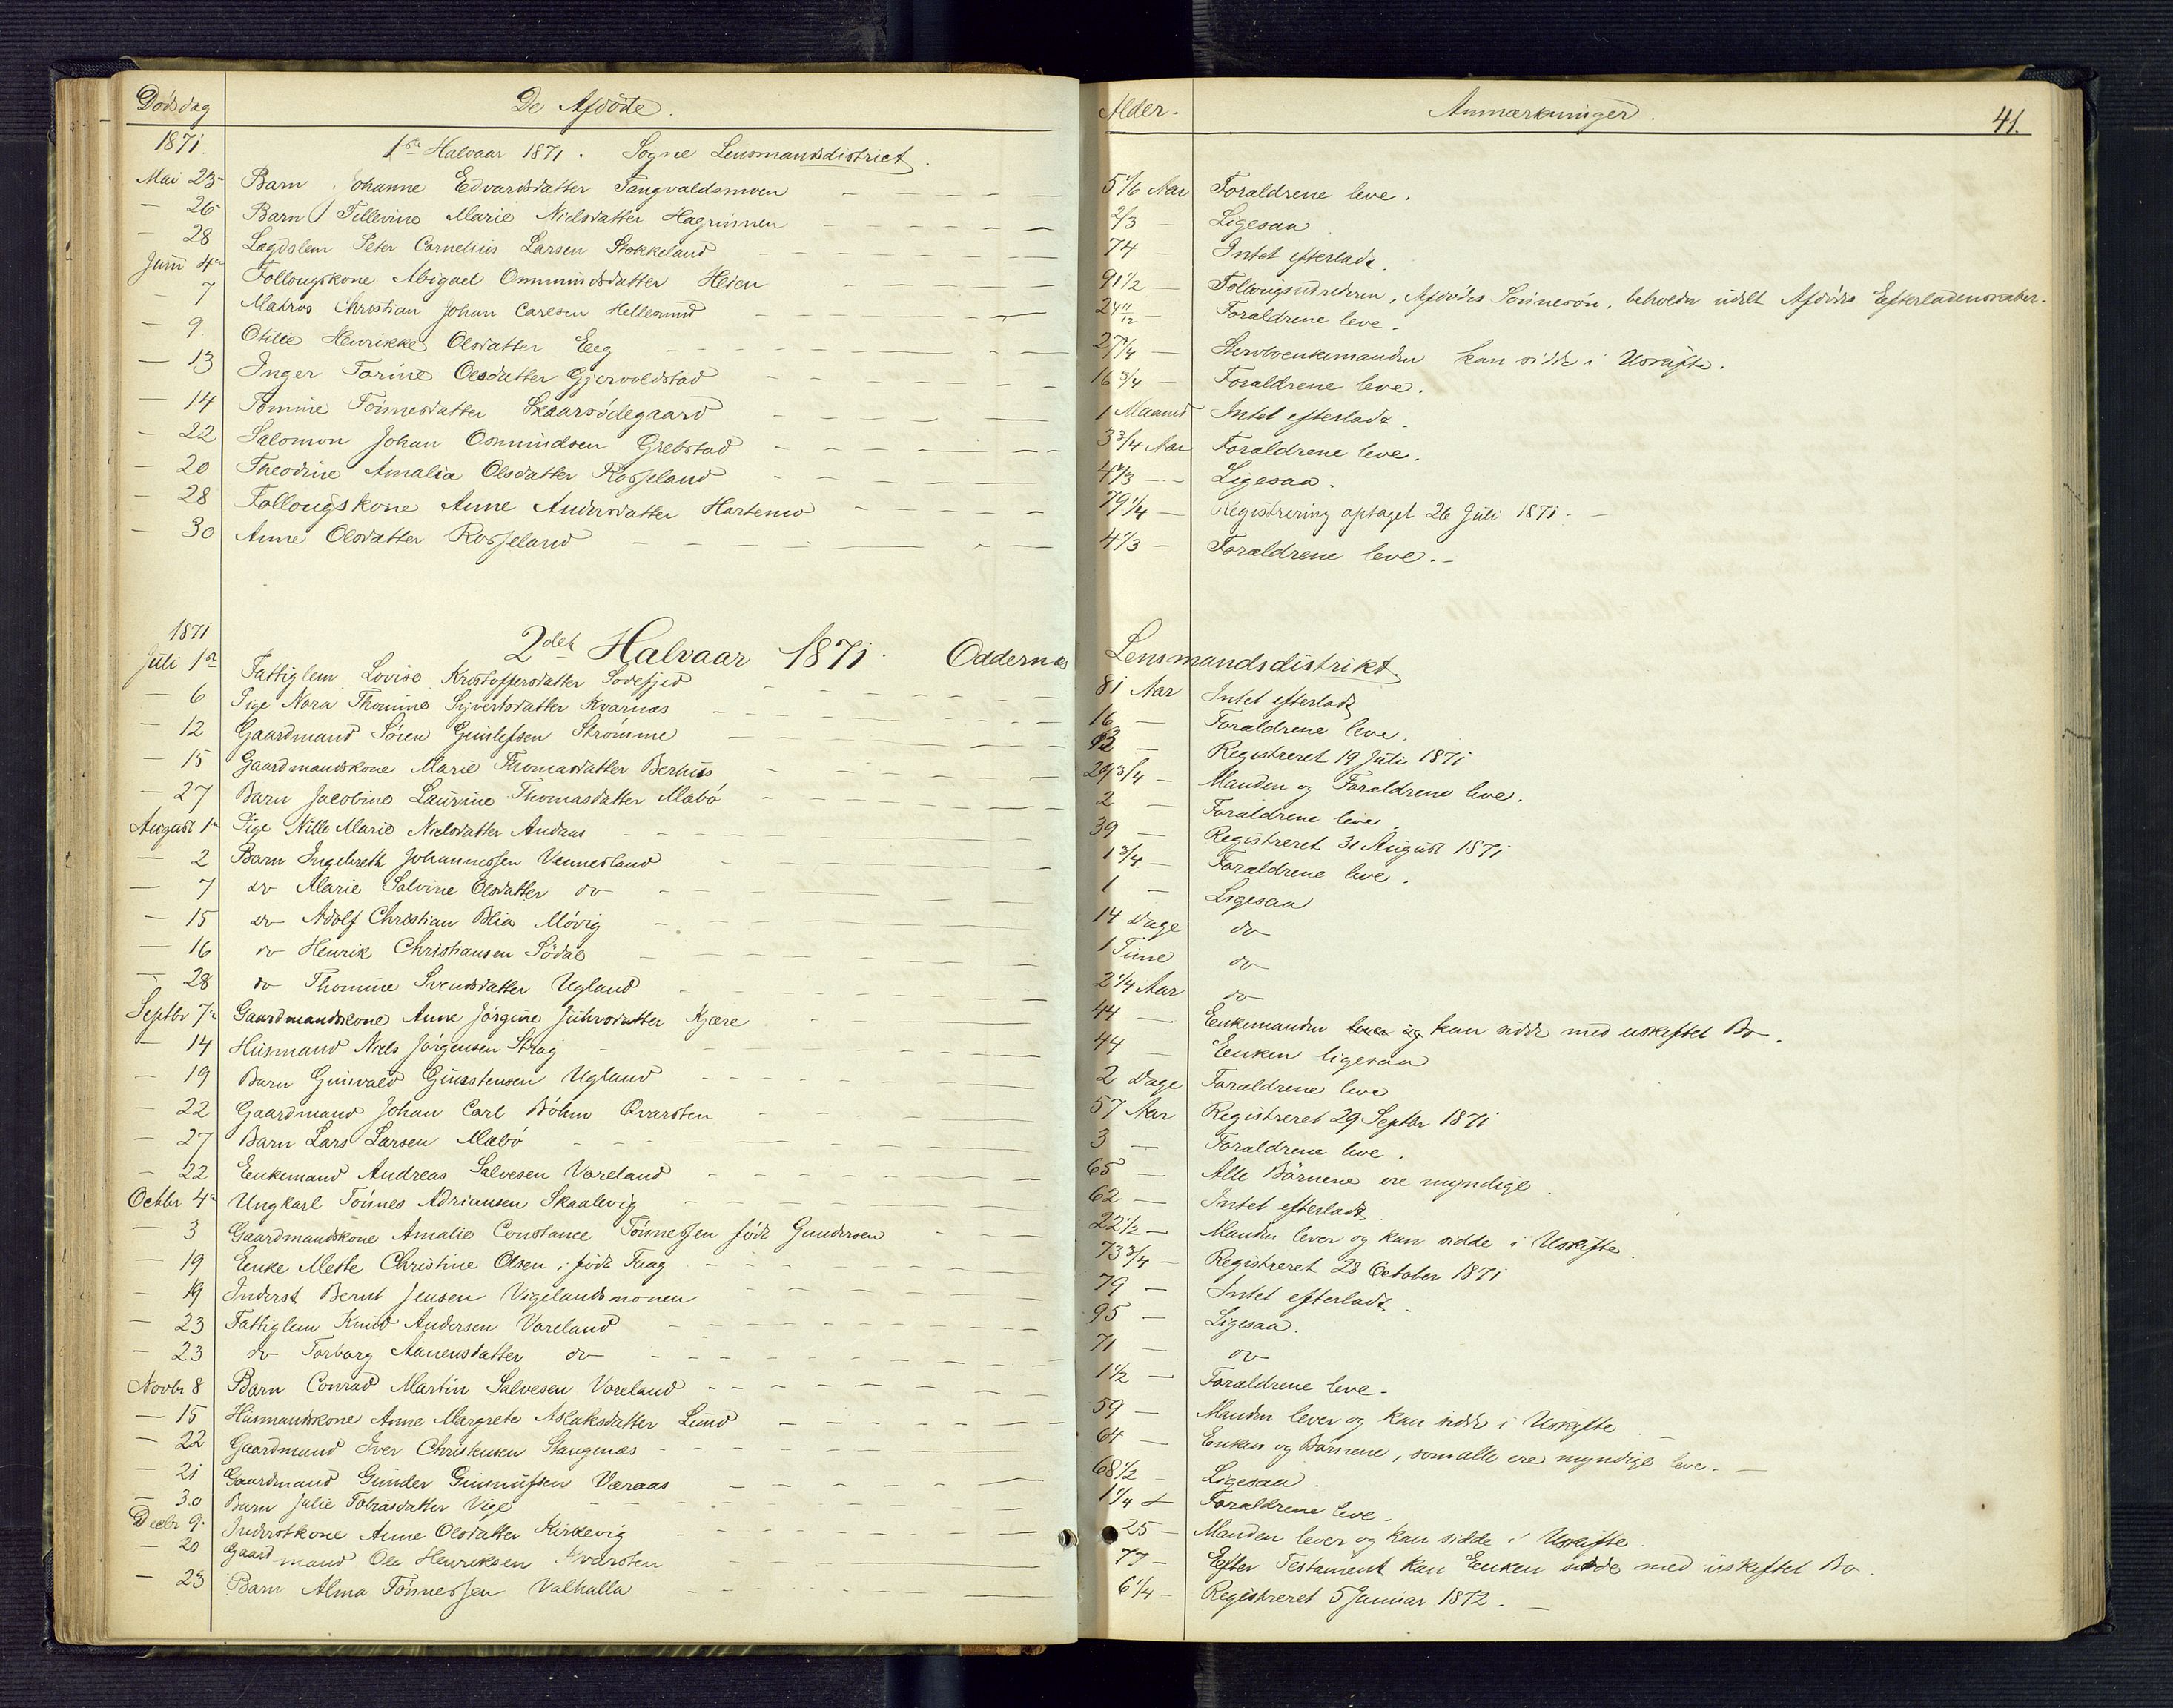 Dödsdag De Afdöde. Alder. Anmærkninger. 41.
1871. 1ste Halvaar 1871. Sogne Lensmandsdistrict.
Mai 23 Barn Johanne Edvardsdatter Tangvaldsmoen 5 1/6 Aar Forældrene leve.
— 26 Barn Tellevine Marie Nielsdatter 2/3 — Ligesaa
— 28 Lægdslem Peter Cornelius Larsen Stokkeland 74 — Intet efterladt.
Juni 4de Follougskone Abigael Ommundsdatter Heien 91 1/2 — Afdödes Sönnesön, beholder Afdödes Efterladenskaber.
— 7 Matros Christian Johan Carlsen Hellesund 24 11/12 — Forældrene leve.
— 9 Otilie Henrikke Olsdatter Eeg 27 1/4 — kan sidde i Uskifte.
— 13 Inger Torine Olsdatter Gjervoldstad 16 3/4 — Forældrene leve.
— 14 Tomine Tönnesdatter Skaarsödegaard 1 Maaned Intet efterladt.
— 22 Salomon Johan Osmundsen Grebstad 3 3/4 Aar Forældrene leve.
— 20 Theodine Amalia Olsdatter Rosseland 4 1/3 — Ligesaa.
— 28 Follougskone Anne Andersdatter Hortemo 79 1/4 — Registrering optaget 26 Juli 1871. —
— 30 Anne Olsdatter Rosseland 4 1/3 — Forældrene leve. —
1871 2det Halvaar 1871. Oddernæs Lensmandsdistrikt
Juli 1ste Fattiglem Lovise Kristoffersdatter Sodefjed 81 Aar Intet efterladt
— 6 Pige Nora Thomine Syvertsdatter Kvarnæs 16 — Forældrene leve.
— 12 Gaardmand Sören Gunlefsen Strömme — Registreret 19 Juli 1871
— 15 Gaardmandskone Marie Thomasdatter Berhus 29 3/4 — Manden og Forældrene leve.
— 27 Barn Jacobine Laurine Thomasdatter Mæbö 2 — Forældrene leve
August 1ste Pige Nille Marie Nielsdatter Andaas 39 — Registreret 31 August 1871
— 2 Barn Ingebreth Johannessen Vennesland 1 3/4 — Forældrene leve.
— 7 do Marie Salvine Olsdatter do 1 — Ligesaa
— 15 do Adolf Christian Blia Mövig 14 Dage do
— 16 do Henrik Christiansen Södal 1 Time do
— 28 do Thomine Svendsdatter Ugland 2 1/4 Aar do
Septbr 7de Gaardmandskone Anne Jörgine Kjære 44 — Enkemanden lever og kan sidde med uskiftet Bo.
— 14 Husmand Niels Jörgensen Strag 44 — Enken ligesaa
— 19 Barn Gunvald Gunstensen Ugland 2 Dage Forældrene leve
— 22 Gaardmand Johan Carl Böhm Qvarsten 57 Aar Registreret 29 Septbr 1871
— 27 Barn Lars Larsen Mæbö 3 — Forældrene leve.
— 22 Enkemand Andreas Salvesen Voreland 65 — Alle Börnene ere myndige.
Octbr 4de Ungkarl Tönnes Adriansen Skaalevig 62 — Intet efterladt
— 3 Gaardmandskone Amalie Constance Tönnessen född Gundersen 22 1/2 — Manden lever og kan sidde i Uskifte.
— 19 Enke Mette Christine Olsen, född Faag 73 3/4 — Registreret 28 October 1871
— 19 Inderst Bernt Jensen Vigelandsmonen 79 — Intet efterladt.
— 23 Fattiglem Knud Andersen Voreland 95 — Ligesaa.
— 23 do Torborg Aanensdatter do 71 — do
Novbr 8 Barn Conrad Martin Salvesen Voreland 1 1/2 — Forældrene leve.
— 15 Husmandskone Anne Margrete Aslaksdatter Lund 59 — Manden lever og kan sidde i Uskifte.
— 22 Gaardmand Iver Christensen Stangenæs 64 — Enken og Börnene, som alle ere myndige leve. —
— 21 Gaardmand Gunder Gunnufsen Væraas 68 1/2 — Ligesaa.
— 30 Barn Julie Tobiasdatter Vige 1 1/4 — Forældrene leve.
Decbr 9 Inderstkone Anne Olsdatter Kirkevig 25 — Manden lever og kan sidde i Uskifte.
— 20 Gaardmand Ole Henriksen Kvarsten 77 — Efter Testament kan Enken sidde med uskiftet Bo.
— 23 Barn Alma Tönnessen Valhalla 6 1/4 — Registreret 5 Januar 1872. —